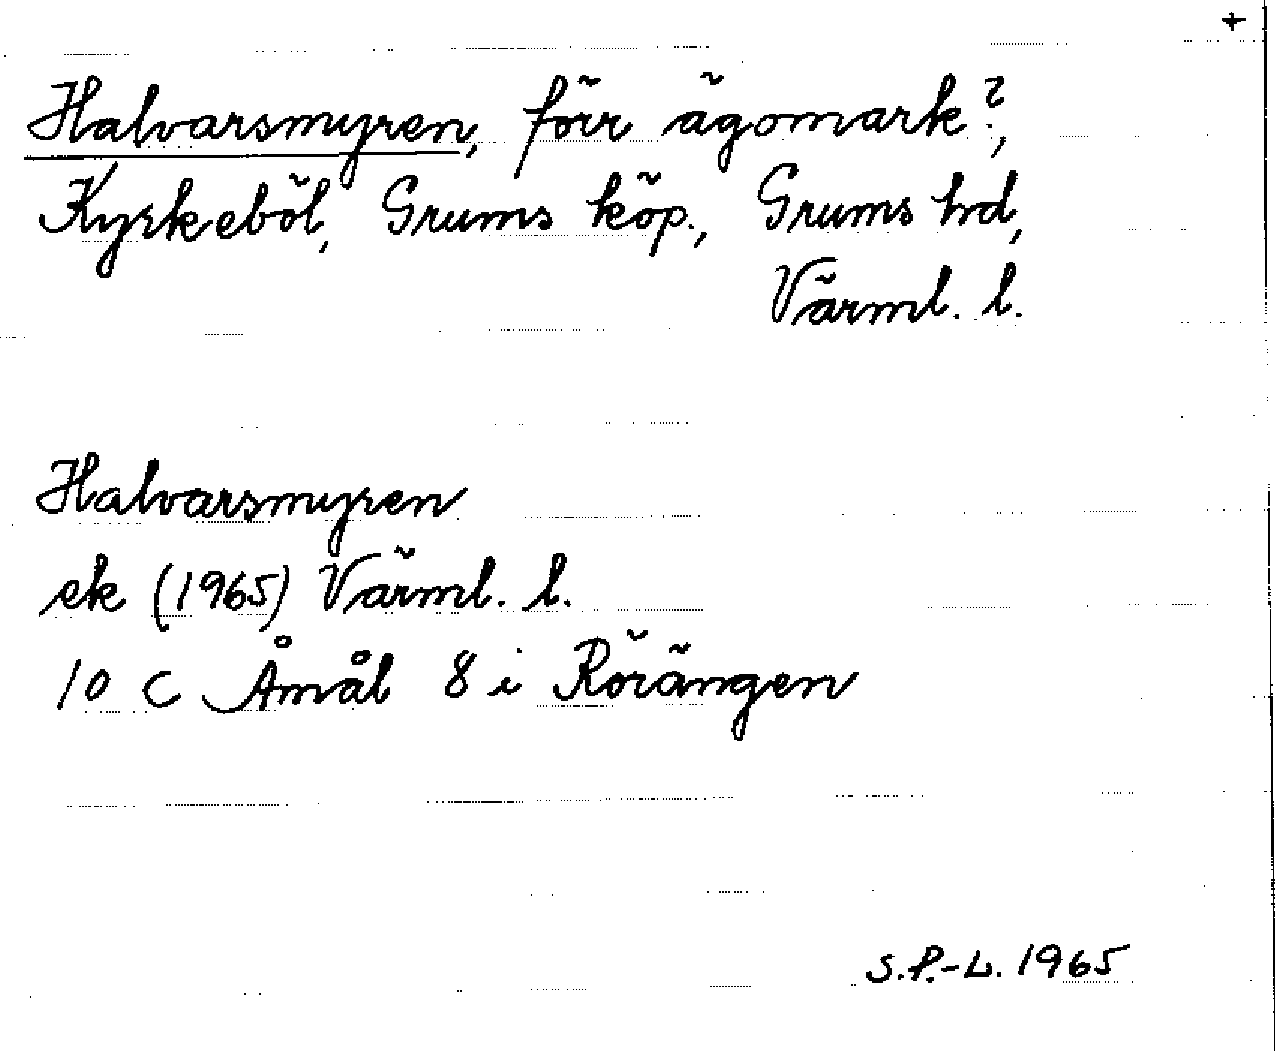 +
Halvarsmyren, förr ägomark?,
Kyrkeböl, Grums köp., Grums hd,
Värml. l.
Halvarsmyren
ek (1965) Värml. l.
10 C Åmål 8 i Rörängen
S.P.-L. 1965